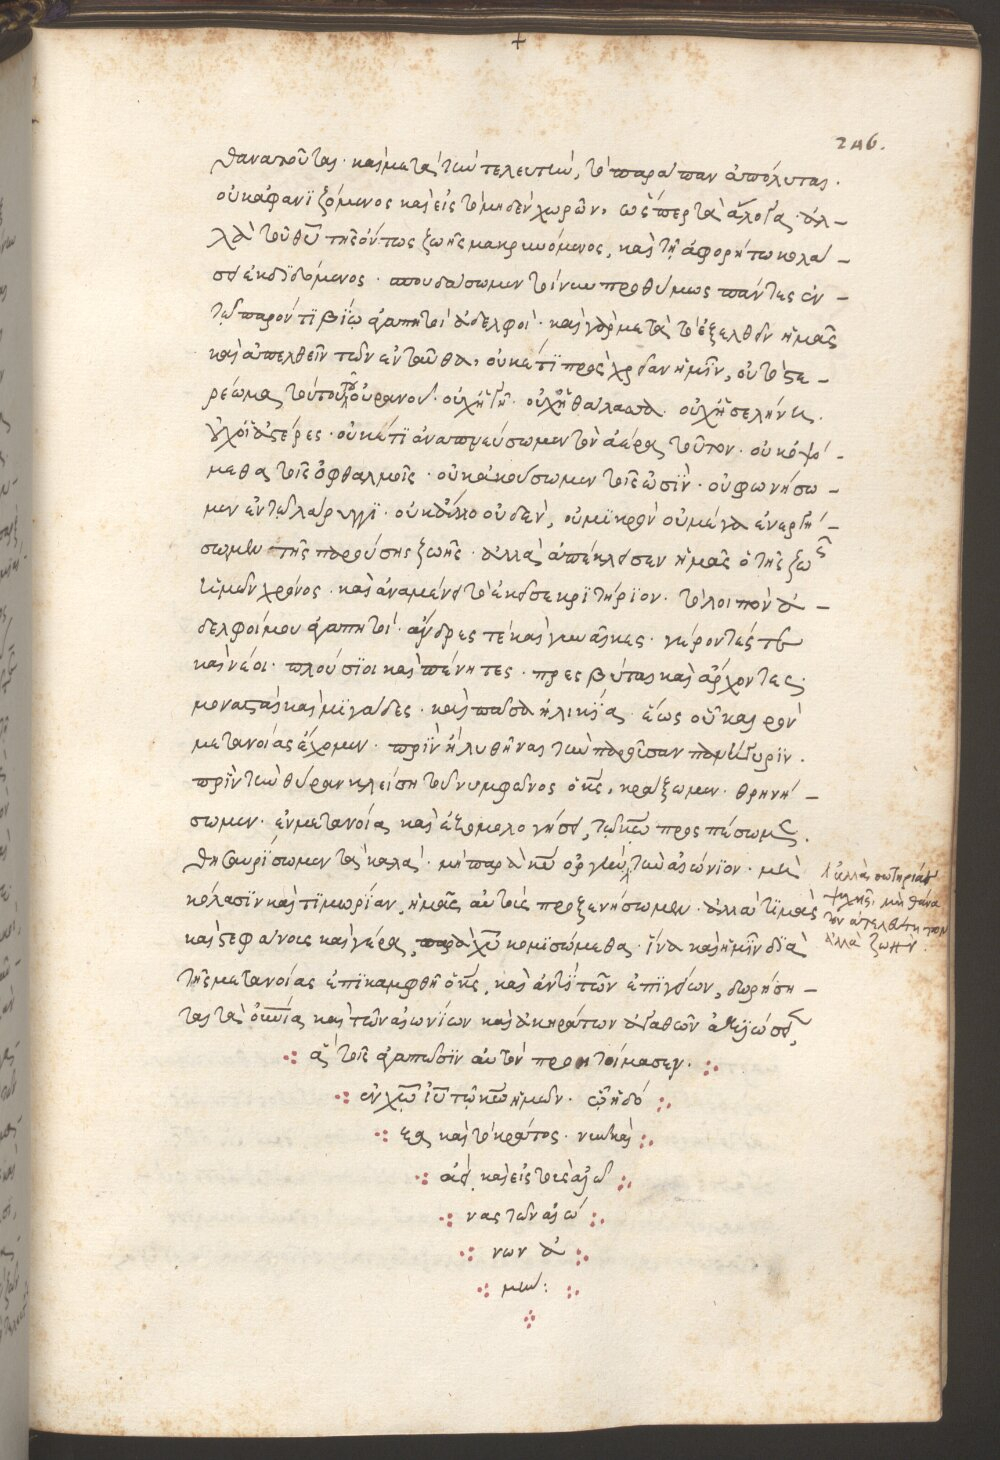 +
246.
θανατοῦται· καὶ μετὰ τὴν τελευτὴν, τὸ παράπαν ἀπόλυται·
οὐκ ἀφανϊζόμενος καὶ εἰς τὸ μηδὲν χωρῶν, ὥσπερ τὰ ἄλογα· ἀλ-
λὰ τοῦ θῦ τῆς ὄντως ζωῆς μακρυνόμενος, καὶ τῆ ἀφορήτω κολά-
σει ἐκδϊδόμενος· σπουδάσωμεν τοίνυν προθύμως πάντες ἐν-
τῶ παρόντι βϊω ἀγαπητοὶ ἀδελφοί· καὶ γὰρ μετὰ τὸ ἐξελθεῖν ἡμᾶς
καὶ ἀπελθεῖν τῶν ἐνταῦθα, οὐκέτϊ πρὸς χρείαν ἡμῖν, οὐ τὸ στε-
ρέωμα τοῦτο τοῦ οὐρανοῦ· οὐχ ἡ γῆ· οὐχ ἡ θάλασσα· οὐχ ἡ σελήνη·
οὐχ οἱ ἀστέρες· οὐκέτϊ ἀναπνεύσωμεν τὸν ἀέρα τοῦτον· οὐκ ὀψό-
μεθα τοῖς ὀφθαλμοῖς· οὐκ ἀκούσωμεν τοῖς ὠσὶν· οὐ φωνήσω-
μεν ἐν τῶ λάρυγγϊ· οὐκ ἄλλο οὐδὲν, οὐ μϊκρὸν οὐ μέγα ἐναργή-
σωμεν τῆς παρούσης ζωῆς· ἀλλὰ ἀπέκλεισεν ἡμᾶς ὁ τῆς ζωῆς
ἡμῶν χρόνος· καὶ ἀναμένει τὸ ἐκεῖσε κρϊτήρϊον· τὸ λοιπὸν ἀ-
δελφοί μου ἀγαπητοί· ἄνδρες τὲ καὶ γυναῖκες· γέροντές τε
καὶ νέοι· πλούσϊοι καὶ πένητες· πρεσβύται καὶ ἄρχοντες·
μονασταὶ καὶ μϊγάδες· καὶ πᾶσα ἡλικϊα· ἕως οὗ καιρὸν
μετανοίας ἔχομεν· πρὶν ἢ λυθῆναι τὴν παροῦσαν πανήγυρϊν·
πρὶν τὴν θύραν κλείση τοῦ νυμφῶνος ὁ κς, κράξωμεν· θρηνή-
σωμεν· ἐν μετανοία καὶ ἐξομολογήσει, τῶ κω προσπέσωμεν·
θησαυρίσωμεν τὰ καλά· μὴ παρὰ κυ ὀργὴν τὴν αἰώνϊον· μὴ
κόλασϊν καὶ τϊμωρίαν, ἡμᾶς αὐτοὺς προξενήσωμεν· ἀλλὰ τϊμὰς
καὶ στεφάνους καὶ γέρα, παρὰ χῦ κομϊσώμεθα· ἵνα καὶ ἡμῖν δϊὰ
τῆς μετανοίας ἐπϊκαμφθῆ ὁ κς, καὶ ἀντὶ τῶν ἐπϊγείων, δωρήση-
ται τὰ οὐνία καὶ τῶν αἰωνίων καὶ ἀκηράτων ἀγαθῶν ἀξϊώσει,
ἃ τοῖς ἀγαπῶσϊν αὐτὸν προητοίμασεν·
ἐν χω ιυ τῶ κω ἡμῶν· ὧ ἡ δό
ξα καὶ τὸ κράτος· νῦν καὶ
ἀεὶ, καὶ εἰς τοὺς αἰῶ
νας τῶν αἰώ
νων ἀ
μήν:
ἀλλὰ σωτηρίαν
ψυχῆς, μὴ θάνα
τον ἀτελεύτητον
ἀλλὰ ζωὴν.